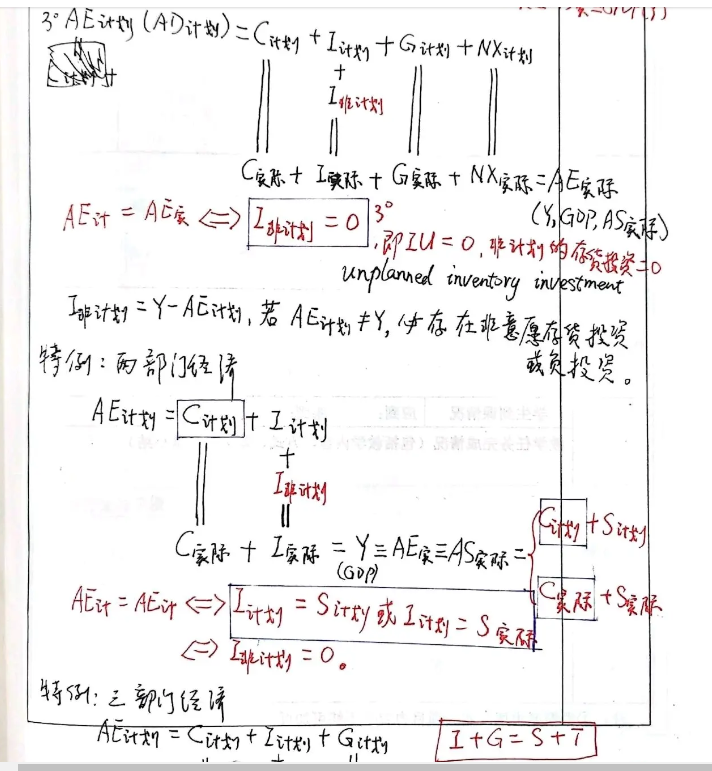 3° AE计划 (AD计划) = C计划 + I计划 + G计划 + NX计划
+
I非计划
C实际 + I实际 + G实际 + NX实际 = AE实际
(Y, GDP, AS实际)
AE计 = AE实 ⟺ I非计划 = 0 3°
, 即IU = 0, 非计划的存货投资=0
unplanned inventory investment
I非计划 = Y - AE计划, 若 AE计划 ≠ Y, 存在非意愿存货投资
或负投资。
特例: 两部门经济
AE计划 = C计划 + I计划
+
I非计划
C实际 + I实际 = Y ≡ AE实 ≡ AS实际 =
(GDP)
C计划 + S计划
C实际 + S实际
AE计 = AE计 ⟺ I计划 = S计划 或 I计划 = S实际
⟺ I非计划 = 0。
特例: 三部门经济
AE计划 = C计划 + I计划 + G计划
I + G = S + T